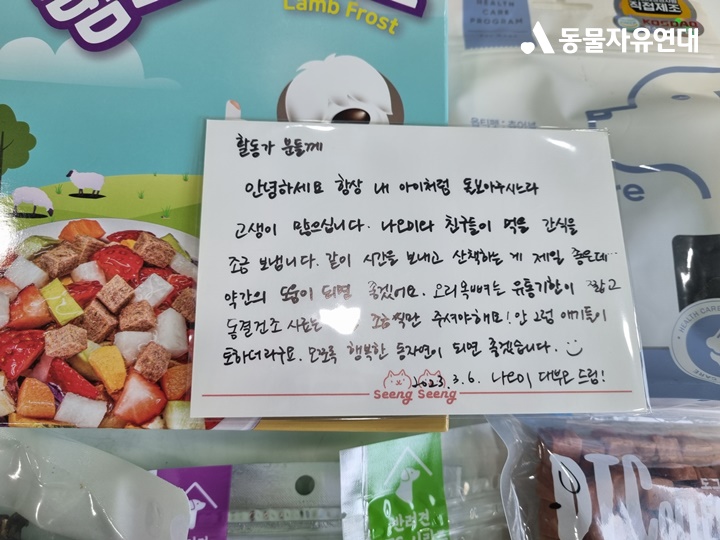 Lamb Frost
HEALTH
CARE
PROGRAM
직접제조
KOSDAQ
동물자유연대
활동가 분들께
안녕하세요 항상 내 아이처럼 돌보아주시느라
고생이 많으십니다. 나오미와 친구들이 먹을 간식을
조금 보냅니다. 같이 시간을 보내고 산책하는 게 제일 좋은데…
약간의 도움이 되면 좋겠어요. 오리목뼈는 유통기한이 짧고
동결건조 사료는 조금씩만 주셔야해요! 안 그럼 애기들이
토하더라구요. 모쪼록 행복한 동자연이 되면 좋겠습니다.
2023. 3. 6. 나오미 대부모 드림!
Seeng Seeng
반려견